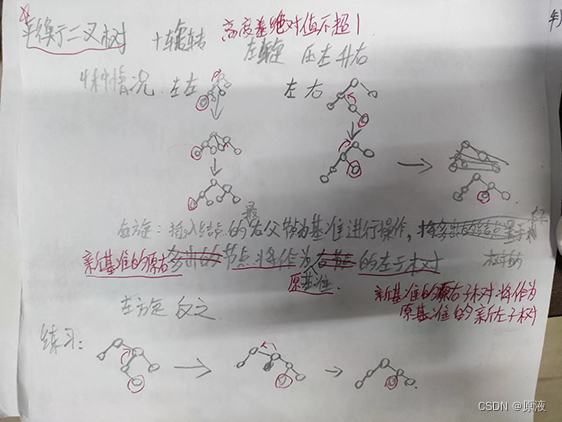 二叉树 + 旋转 高度差绝对值不超1
左旋 压左升右
4种情况. 左左 左右
右旋: 插入结点的 父节为基准进行操作,
新基准的原右 节点将作为 的左子树
原基准.
新基准的原右子树将作为
原基准的新左子树
左旋反之
练习:
CSDN @原液